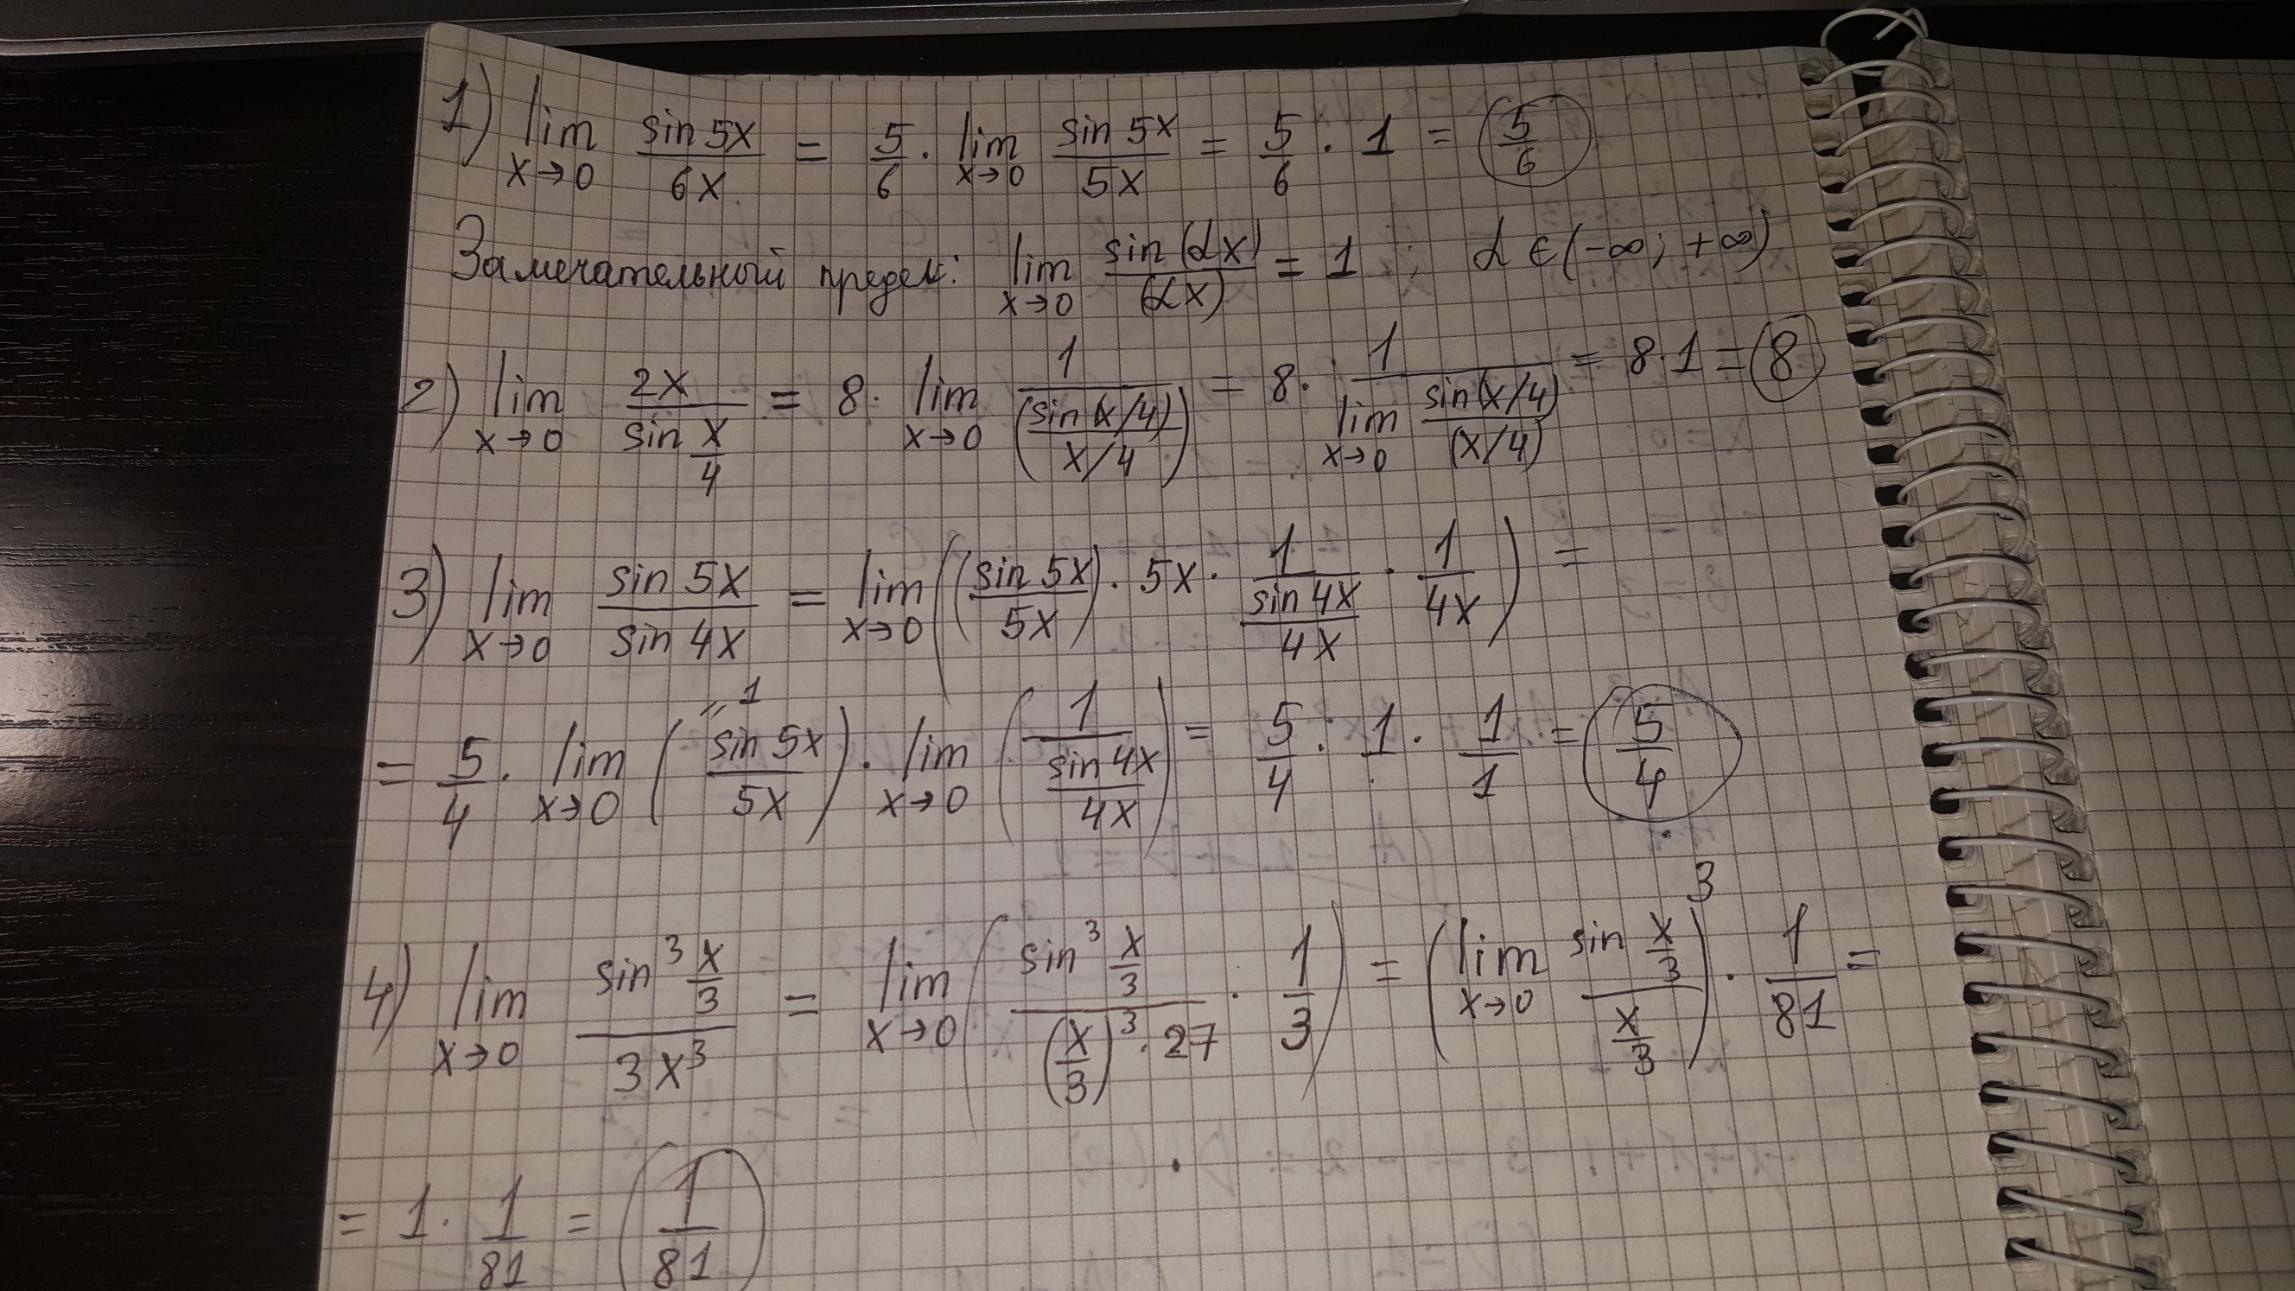 1) lim x→0 sin 5x / 6x = 5/6 · lim x→0 sin 5x / 5x = 5/6 · 1 = 5/6
Замечательный предел: lim x→0 sin(αx) / (αx) = 1 ; α ∈ (-∞; +∞)
2) lim x→0 2x / sin x/4 = 8 · lim x→0 1 / (sin(x/4) / x/4) = 8 · 1 / lim x→0 sin(x/4) / (x/4) = 8 · 1 = 8
3) lim x→0 sin 5x / sin 4x = lim x→0 ((sin 5x / 5x) · 5x · 1 / (sin 4x / 4x) · 1/4x) =
= 5/4 · lim x→0 (sin 5x / 5x) = 1 · lim x→0 (1 / (sin 4x / 4x)) = 5/4 · 1 · 1/1 = 5/4
4) lim x→0 sin³ x/3 / 3x³ = lim x→0 (sin³ x/3 / ((x/3)³ · 27) · 1/3) = (lim x→0 sin x/3 / x/3)³ · 1/81 =
= 1 · 1/81 = 1/81